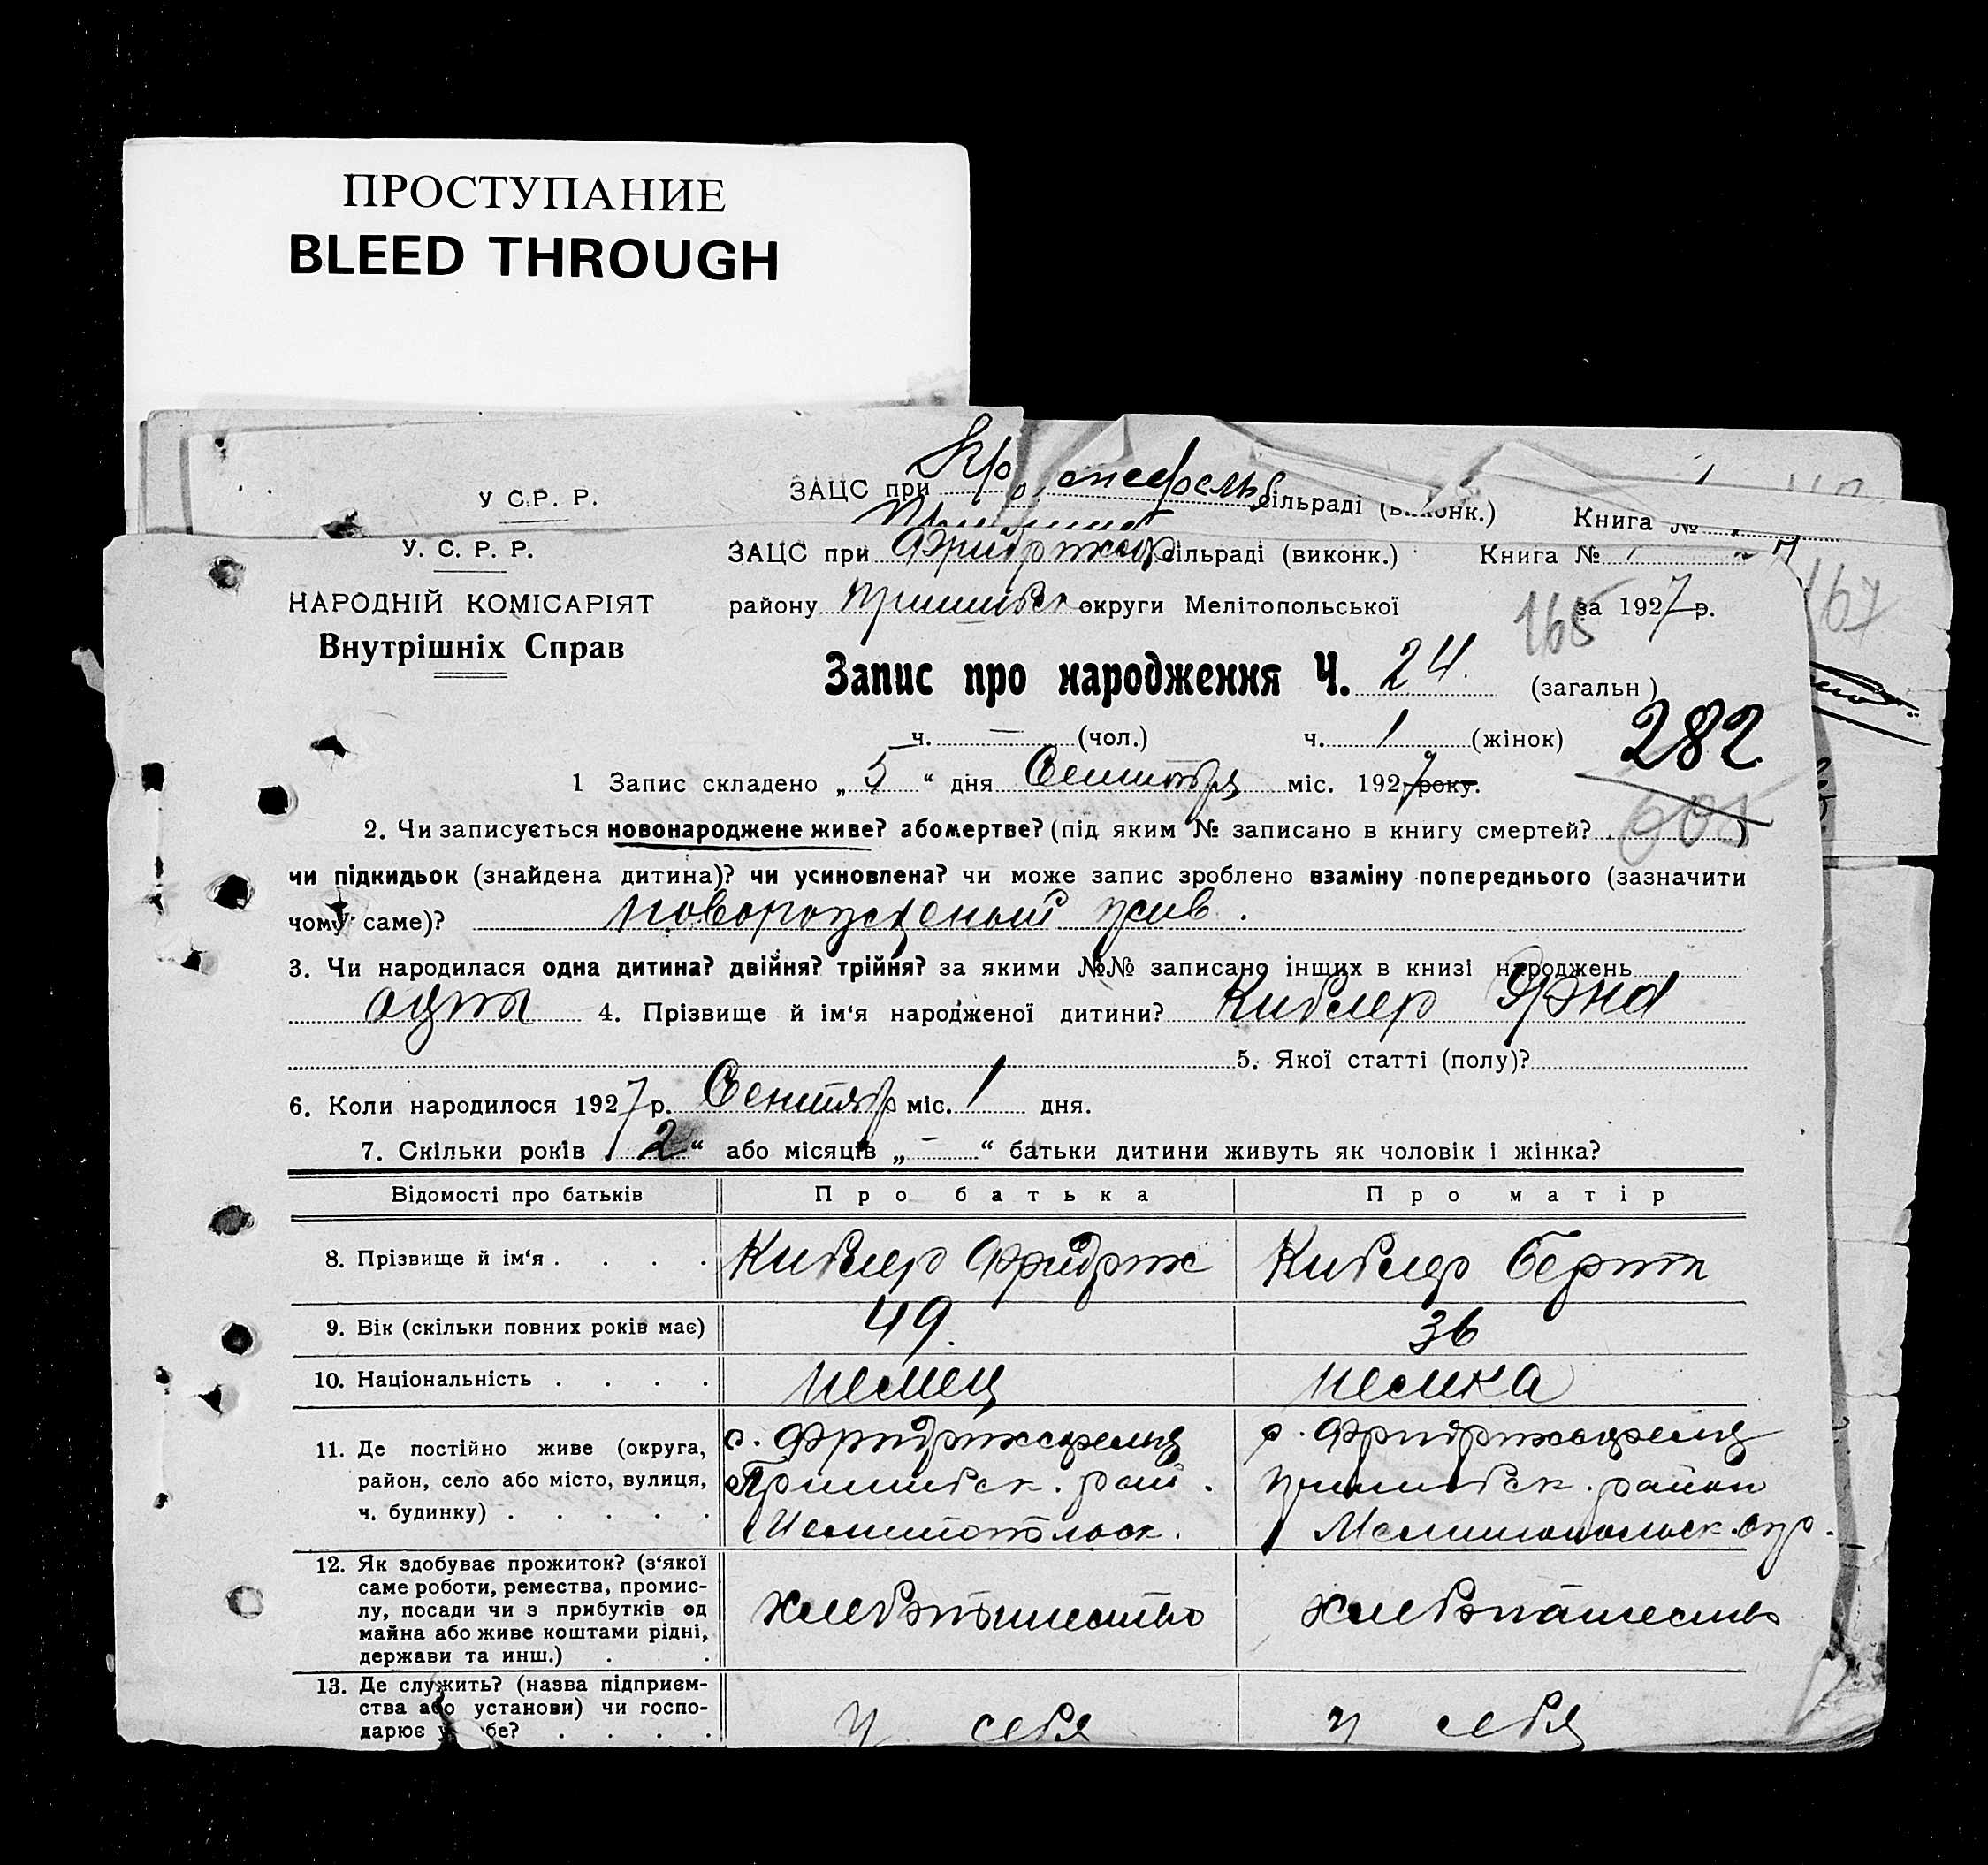 ПРОСТУПАНИЕ
BLEED THROUGH
У С.Р. Р. ЗАЦС при сільраді (виконк.) Книга №
У. С. Р. Р. ЗАЦС при Фридрихсф сільраді (виконк.) Книга № 1
НАРОДНІЙ КОМІСАРІЯТ району Пришибск округи Мелітопольської за 1927 р.
165 167
Внутрішніх Справ
Запис про народження Ч. 24. (загальн )
282
ч. — (чол.) ч. 1 (жінок)
1 Запис складено „ 5 “ дня Сентября міс. 1927 року.
2. Чи записується новонароджене живе? або мертве? (під яким № записано в книгу смертей? )
чи підкидьок (знайдена дитина)? чи усиновлена? чи може запис зроблено взаміну попереднього (зазначити
чому саме)? новорожденый жив.
3. Чи народилася одна дитина? двійня? трійня? за якими №№ записано інших в книзі народжень
4. Прізвище й ім‘я народженої дитини? Киблер Эрна
5. Якої статті (полу)?
6. Коли народилося 1927 р. Сентябр міс. 1 дня.
7. Скільки років „ 2 “ або місяців „ — “ батьки дитини живуть як чоловік і жінка?
Відомості про батьків Про батька Про матір
8. Прізвище й ім‘я . . . . Киблер Фридрих Киблер Берта
9. Вік (скільки повних років має) 49. 36
10. Національність . . . . немец немка
11. Де постійно живе (округа, с. Фридрихсфельд с. Фридрихсфельд
район, село або місто, вулиця, Пришибск. рай. Пришибск. район
ч. будинку) . . . . . Мелитопольск. Мелитопольск. окр.
12. Як здобуває прожиток? (з‘якої
саме роботи, ремества, промис-
лу, посади чи з прибутків од хлебопашество хлебопашество
майна або живе коштами рідні,
держави та инш.) . .
13. Де служить? (назва підприєм-
ства або установи) чи госпо-
дарює у себе? . . . . у себя у себя